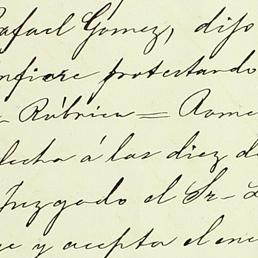 Rafael Gomez, dijo
nfiere protestando
- Rúbrica = Rome
fecha á las diez de
Juzgado el Sr-
y acepta el enc